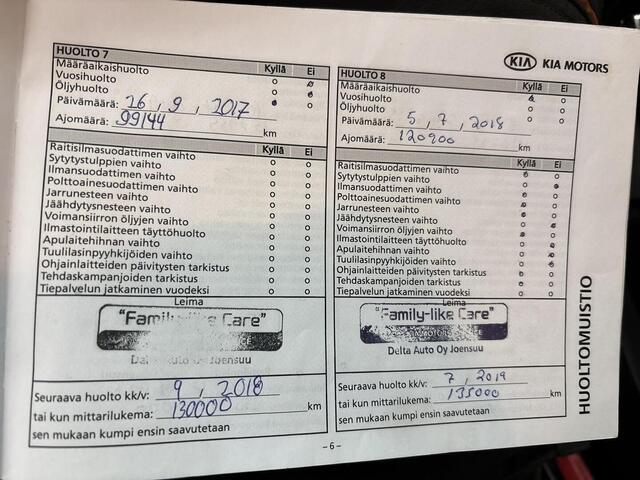 HUOLTO 7
Kyllä Ei
Määräaikaishuolto
Vuosihuolto
Öljyhuolto
Päivämäärä: 26 , 9 , 2017
Ajomäärä: 99144 km
Kyllä Ei
Raitisilmasuodattimen vaihto
Sytytystulppien vaihto
Ilmansuodattimen vaihto
Polttoainesuodattimen vaihto
Jarrunesteen vaihto
Jäähdytysnesteen vaihto
Voimansiirron öljyjen vaihto
Ilmastointilaitteen täyttöhuolto
Apulaitehihnan vaihto
Tuulilasinpyyhkijöiden vaihto
Ohjainlaitteiden päivitysten tarkistus
Tehdaskampanjoiden tarkistus
Tiepalvelun jatkaminen vuodeksi
Leima
"Family-like Care"
Delta Auto Oy Joensuu
Seuraava huolto kk/v: 9 , 2018
tai kun mittarilukema: 130000 km
sen mukaan kumpi ensin saavutetaan
KIA KIA MOTORS
HUOLTO 8
Kyllä Ei
Määräaikaishuolto
Vuosihuolto
Öljyhuolto
Päivämäärä: 5 , 7 , 2018
Ajomäärä: 120900 km
Kyllä Ei
Raitisilmasuodattimen vaihto
Sytytystulppien vaihto
Ilmansuodattimen vaihto
Polttoainesuodattimen vaihto
Jarrunesteen vaihto
Jäähdytysnesteen vaihto
Voimansiirron öljyjen vaihto
Ilmastointilaitteen täyttöhuolto
Apulaitehihnan vaihto
Tuulilasinpyyhkijöiden vaihto
Ohjainlaitteiden päivitysten tarkistus
Tehdaskampanjoiden tarkistus
Tiepalvelun jatkaminen vuodeksi
Leima
"Family-like Care"
Delta Auto Oy Joensuu
Seuraava huolto kk/v: 7 , 2019
tai kun mittarilukema: 135000 km
sen mukaan kumpi ensin saavutetaan
HUOLTOMUISTIO
– 6 –